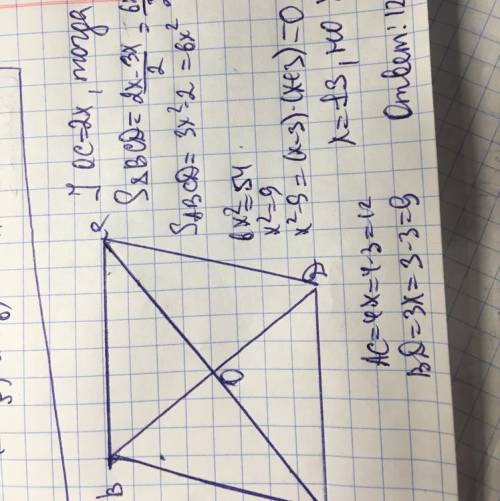 ] OC=2x, тогда
S△BCD= 2x·3x/2 = 6x²
SABCD= 3x²·2 =6x²
6x²=54
x²=9
x²-9=(x-3)·(x+3)=0
x=±3, но
AC=4x=4·3=12
BD=3x=3·3=9
Ответ: 12
B
C
O
D